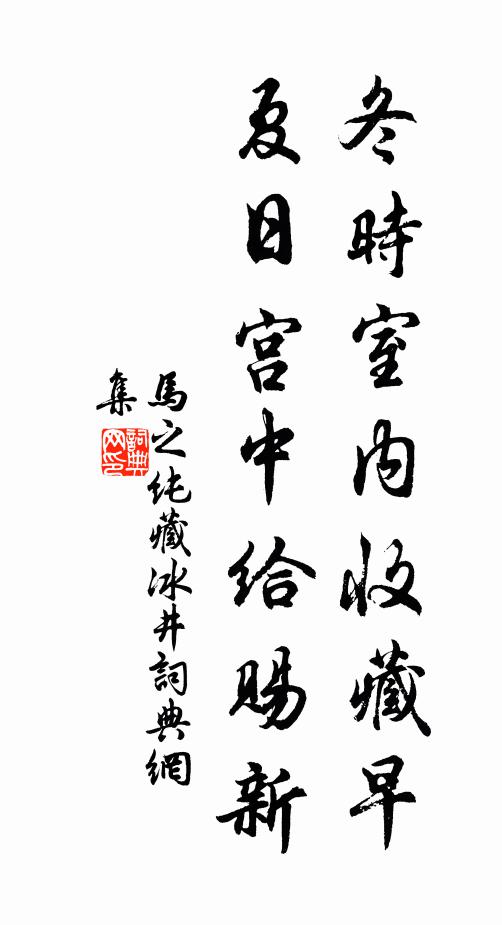 冬時室内收藏早
夏日宫中給賜新
馬之純藏冰井詞典網
集
詞典
网印